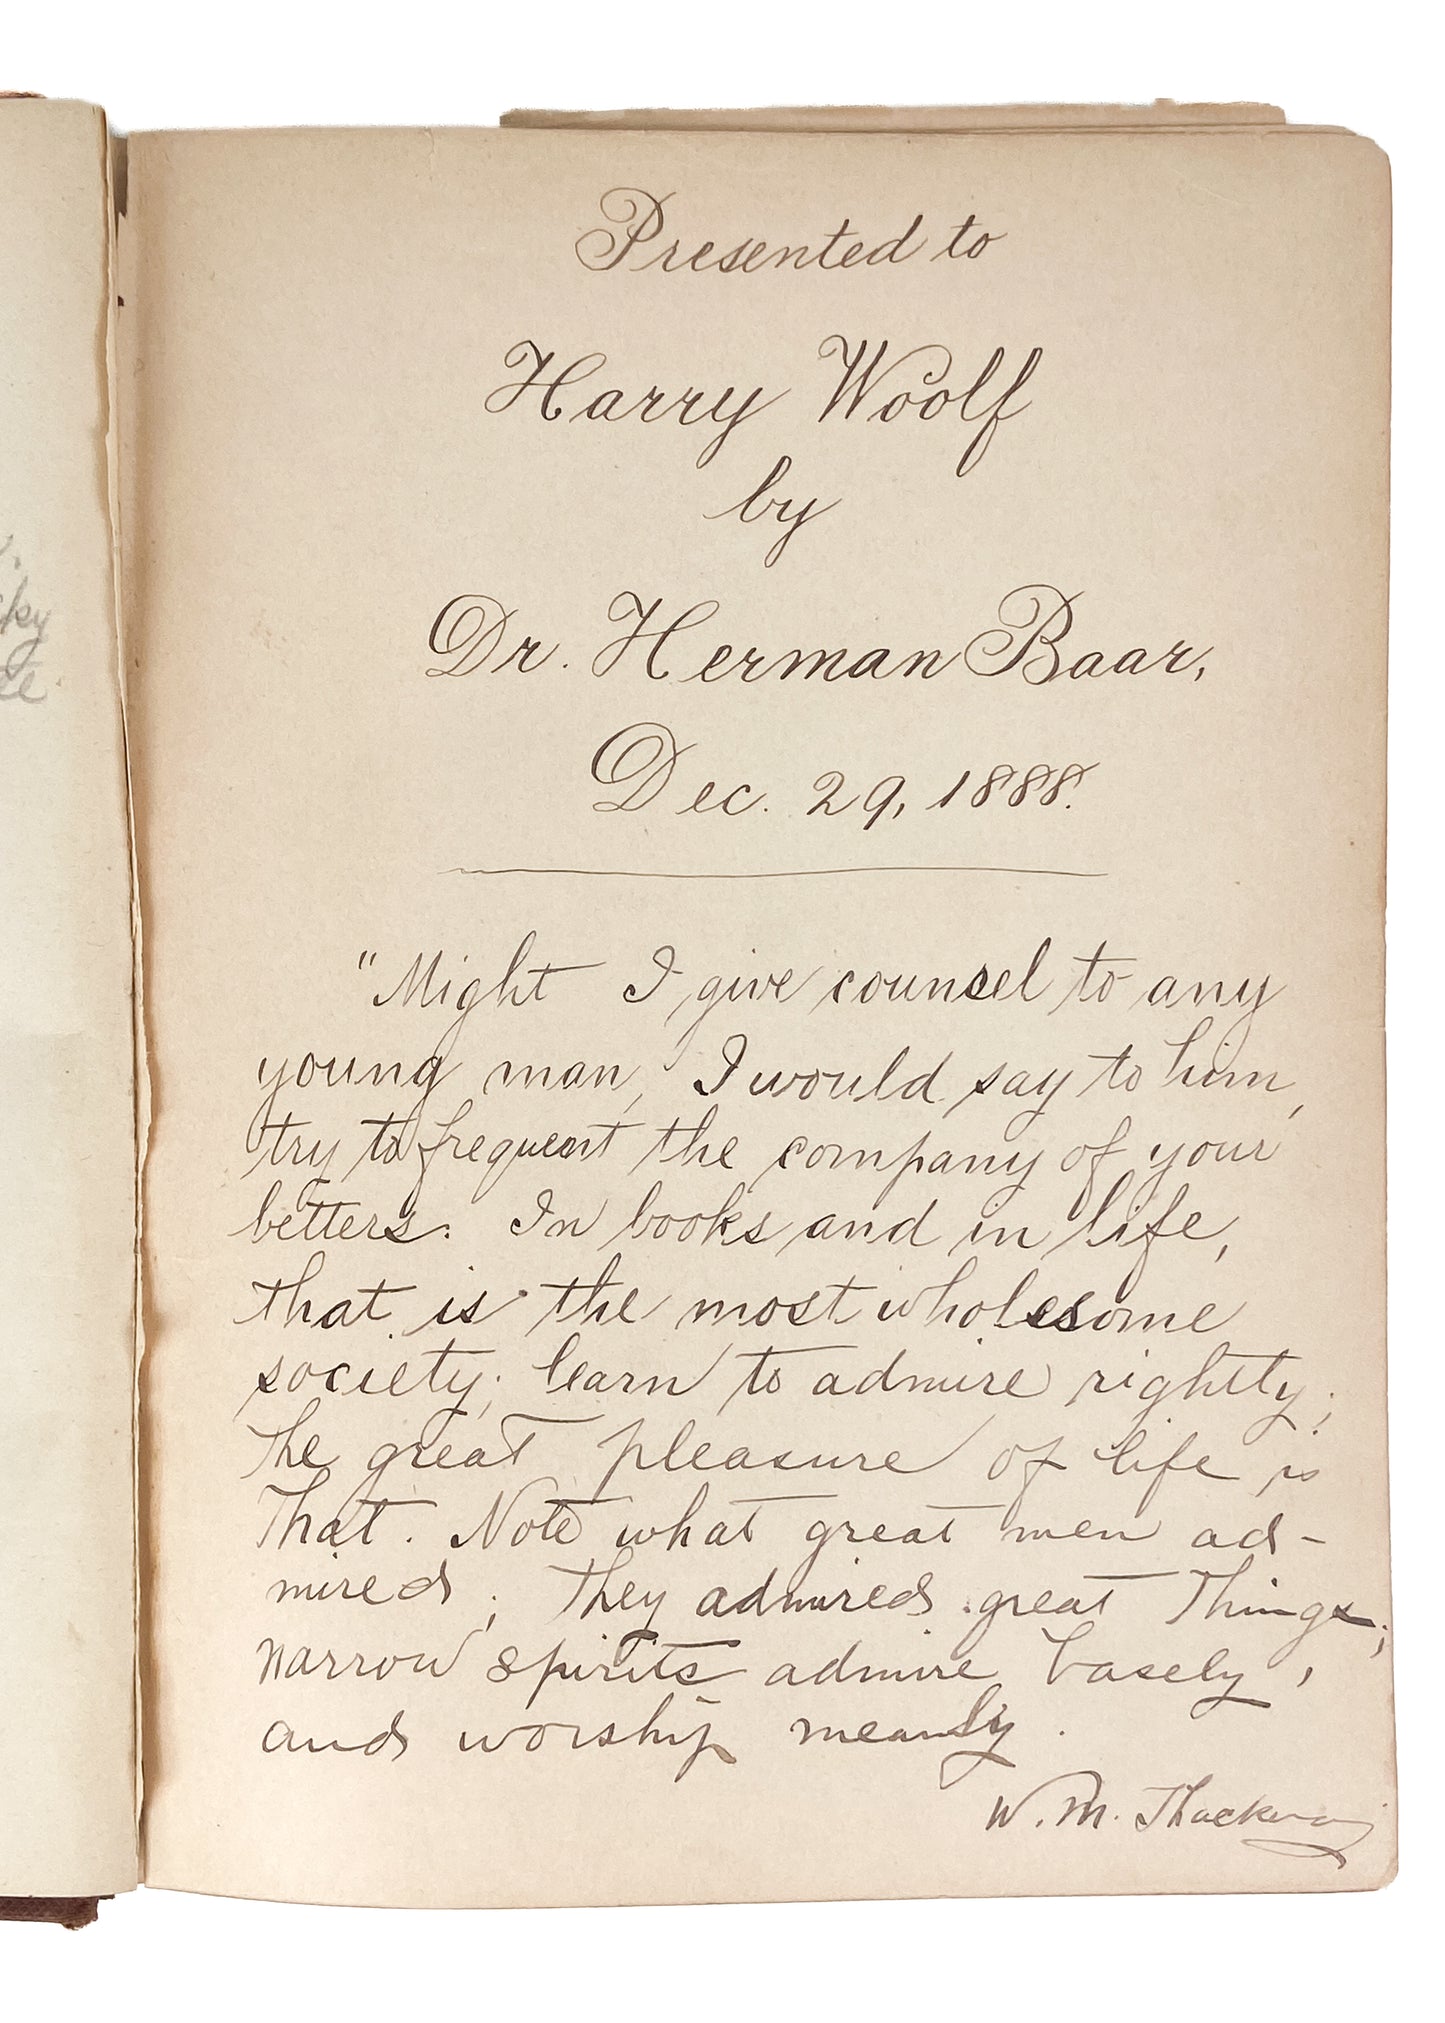 Presented to
Harry Woolf
by
Dr. Herman Baar,
Dec. 29, 1888.
"Might I give counsel to any
young man, I would say to him,
try to frequent the company of your
betters. In books and in life,
that is the most wholesome
society; learn to admire rightly;
the great pleasure of life is
that. Note what great men ad-
mired; they admired great things;
narrow spirits admire basely,
and worship meanly.
W. M. Thackeray
ky